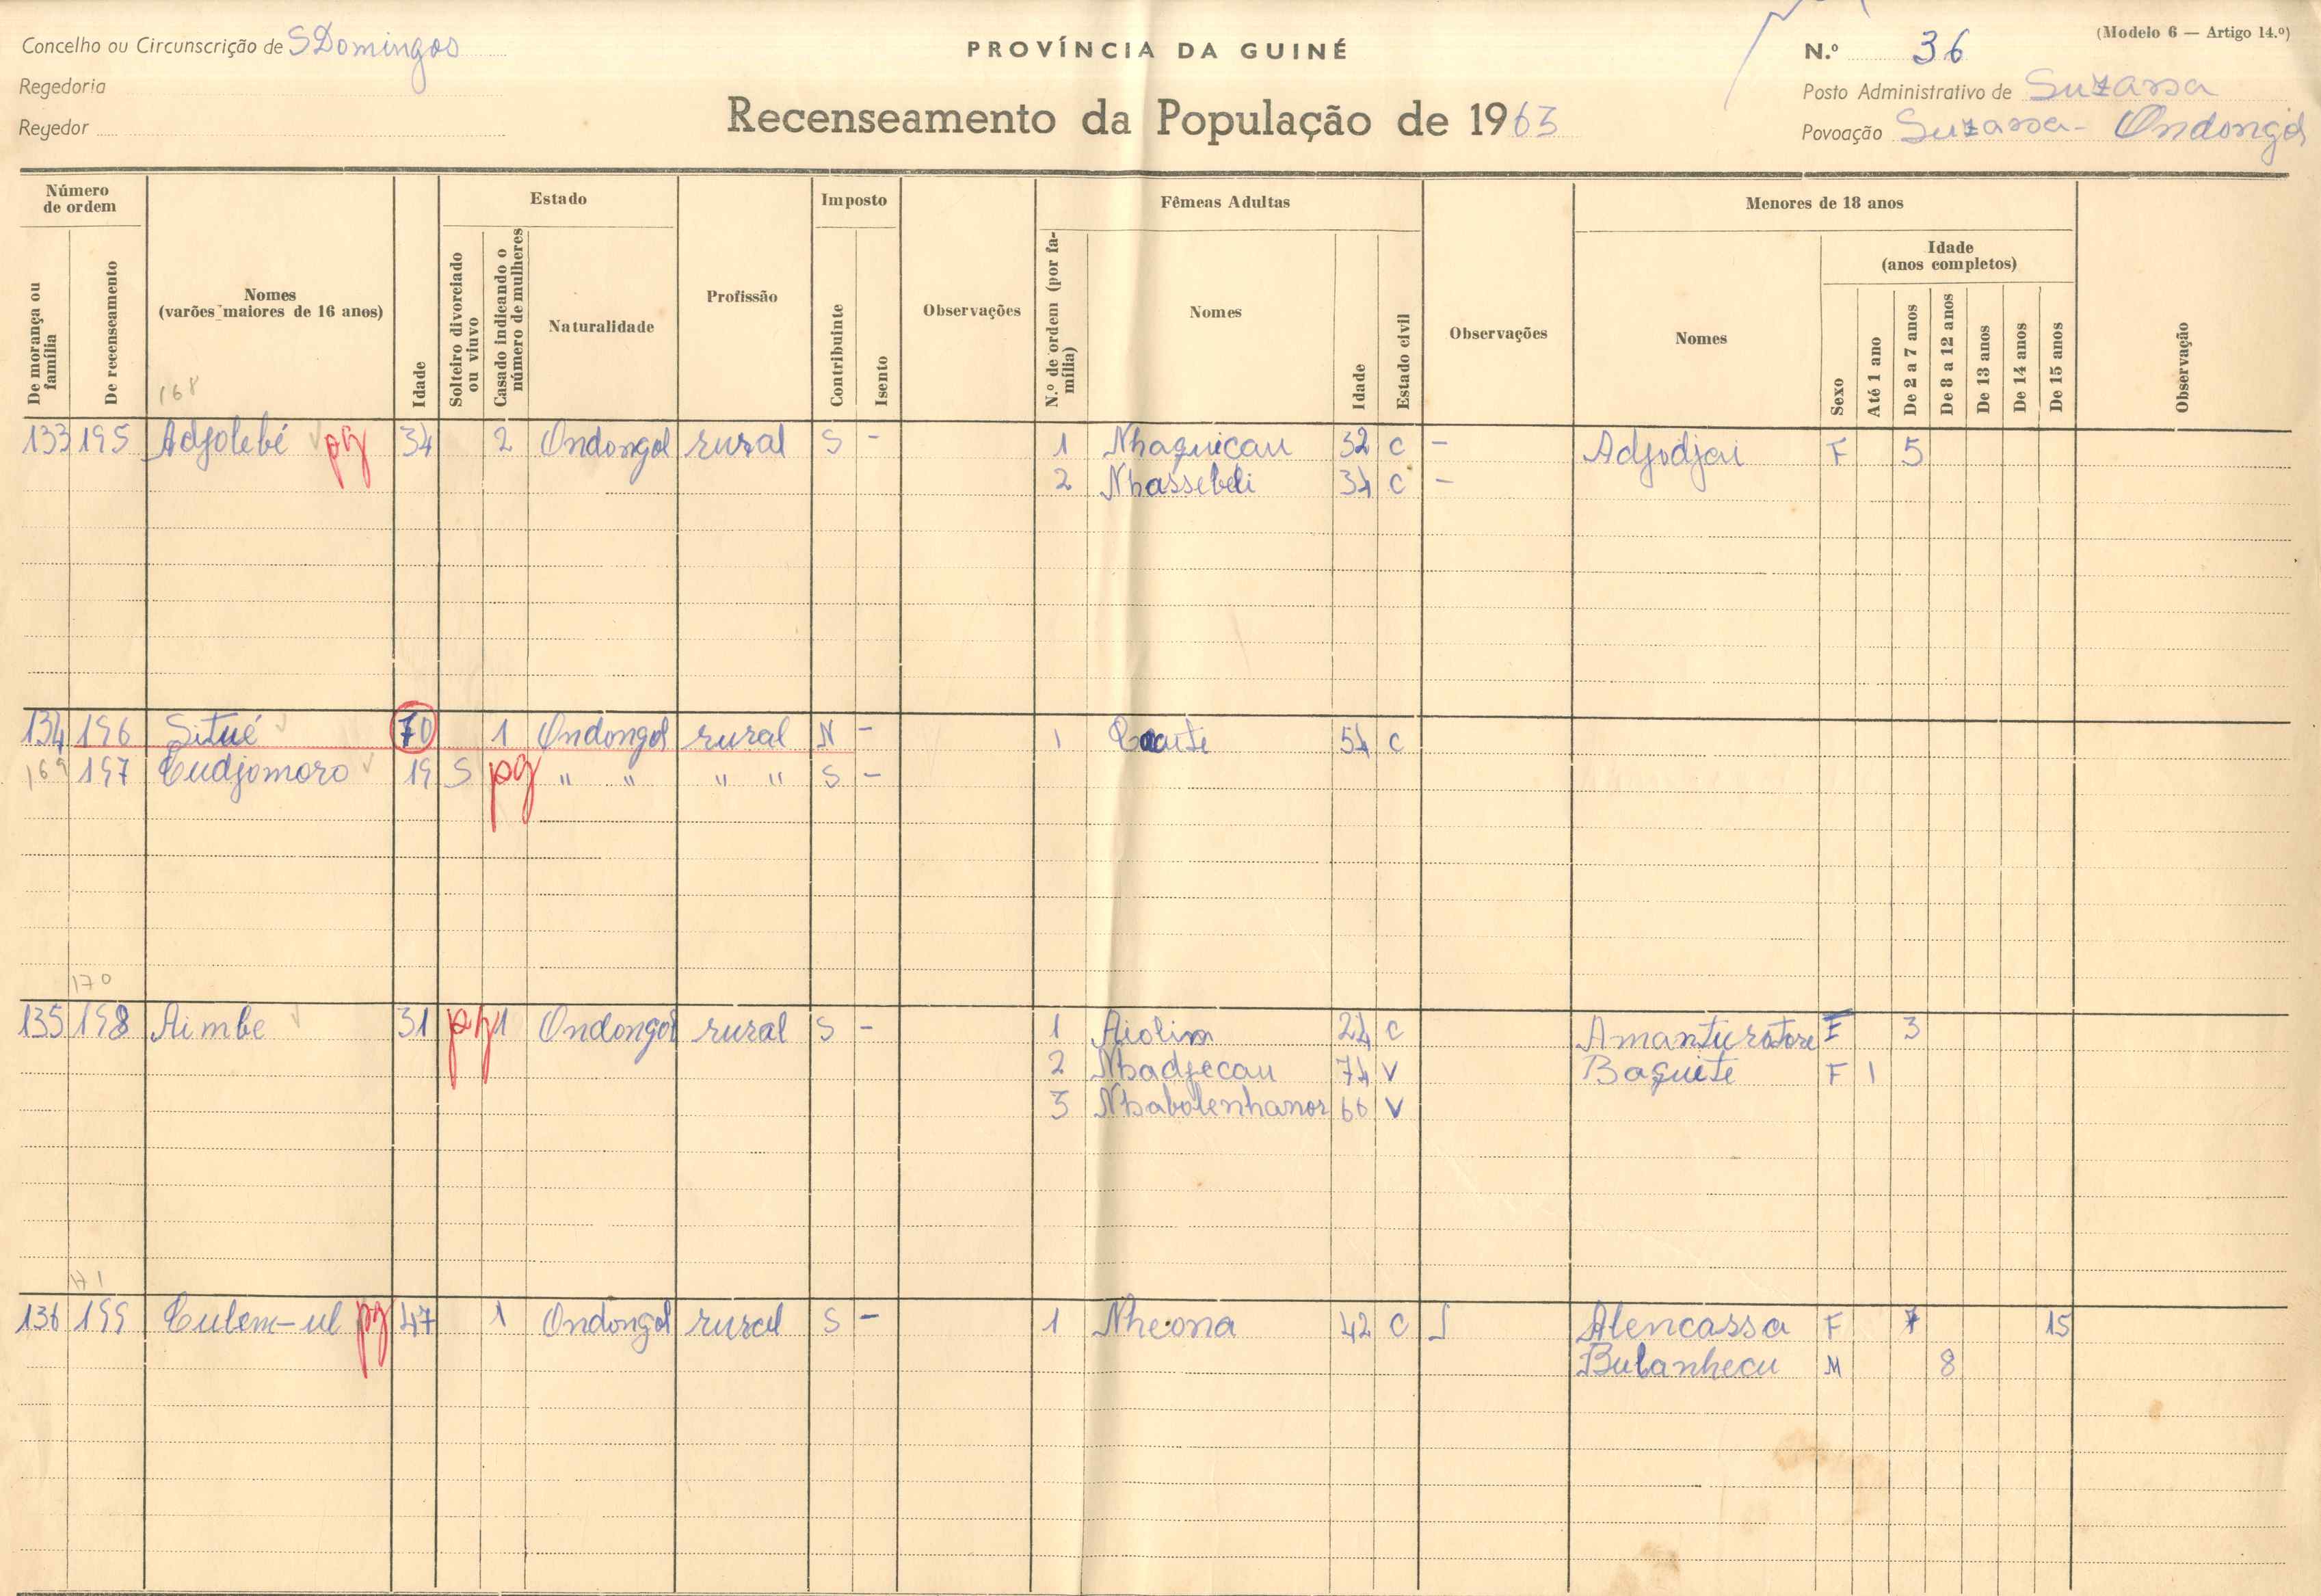 Concelho ou Circunscrição de S Domingos
PROVÍNCIA DA GUINÉ
N.º 36
(Modelo 6 — Artigo 14.º)
Regedoria
Posto Administrativo de Suzana
Regedor
Recenseamento da População de 1963
Povoação Suzana - Ondongol
Número de ordem
Estado
Imposto
Fêmeas Adultas
Menores de 18 anos
De morança ou família
De recenseamento
Nomes (varões maiores de 16 anos)
Idade
Solteiro divorciado ou viuvo
Casado indicando o número de mulheres
Naturalidade
Profissão
Contribuinte
Isento
Observações
N.º de ordem (por família)
Nomes
Idade
Estado civil
Observações
Nomes
Sexo
Idade (anos completos)
Até 1 ano
De 2 a 7 anos
De 8 a 12 anos
De 13 anos
De 14 anos
De 15 anos
Observação
168
133 195 Adjolebé pg 34 2 Ondongol rural S - 1 Nhaquicau 32 C - Adjodjai F 5
2 Nhassebeli 34 C -
134 196 Situé 70 1 Ondongol rural N - 1 54 C
169 197 Cudjomoro 19 S pg " " " " S -
170
135 198 Aimbe 31 pg 1 Ondongol rural S - 1 Aiolim 24 C Amanturotore F 3
2 Nhadjecau 74 V Baquite F 1
3 Nhabolenhanor 66 V
171
136 199 Culem-ul pg 47 1 Ondongol rural S - 1 Nheona 42 C Alencassa F 7 15
Bulanhecu M 8